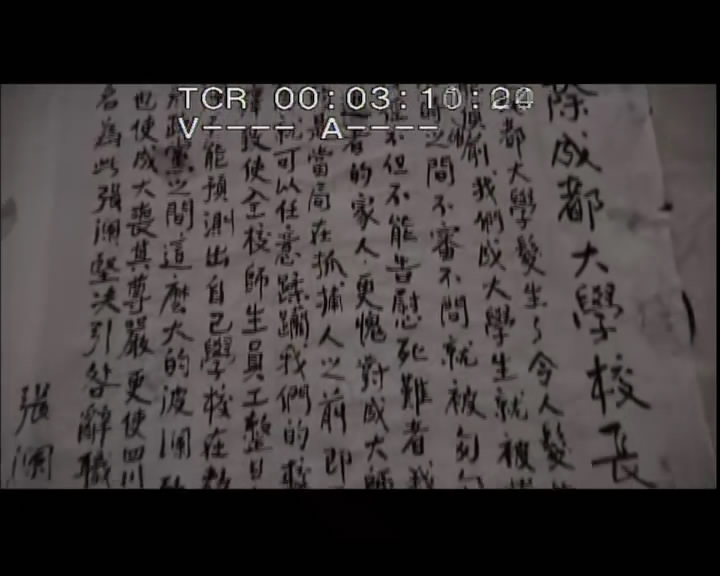 TCR 00:03:10:24
V---- A----
除成都大學校長
都大學發生了令人髮
我們成大學生就被
時之間不審不問就被
不但不能告慰死難者我
者的家人更愧對成大師
是當局在抓捕人之前即
就可以任意蹂躪我們的校
使全校師生員工整日
能預測出自己學校在
黨之間這麼大的波瀾
也使成大喪其尊嚴更使四川
名為此張瀾堅決引咎辭職
張瀾